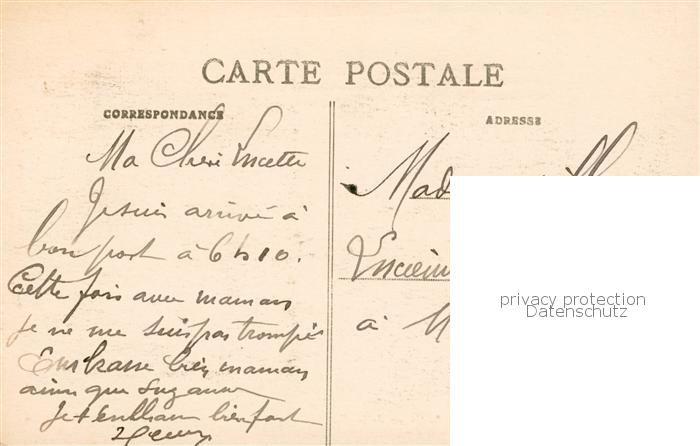 CARTE POSTALE
CORRESPONDANCE
ADRESSE
Ma Chérie Lucette
Je suis arrivé à
bon port à 6 h 10.
Cette fois avec maman
je ne me suis pas trompé
Embrasse bien maman
ainsi que Suzanne
Je t'embrasse bien fort
Mad
à M
privacy protection
Datenschutz